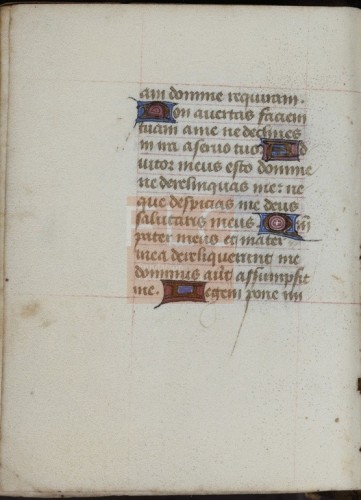 am domine requiram.
Non avertas faciem
tuam a me ne declines
in ira a servo tuo Ad
iutor meus esto domine
ne derelinquas me: ne
que despicias me deus
salutaris meus. Qm̄
pater meus et mater
mea dereliquerunt me
dominus aūt assumpsit
me. Legem pone mi